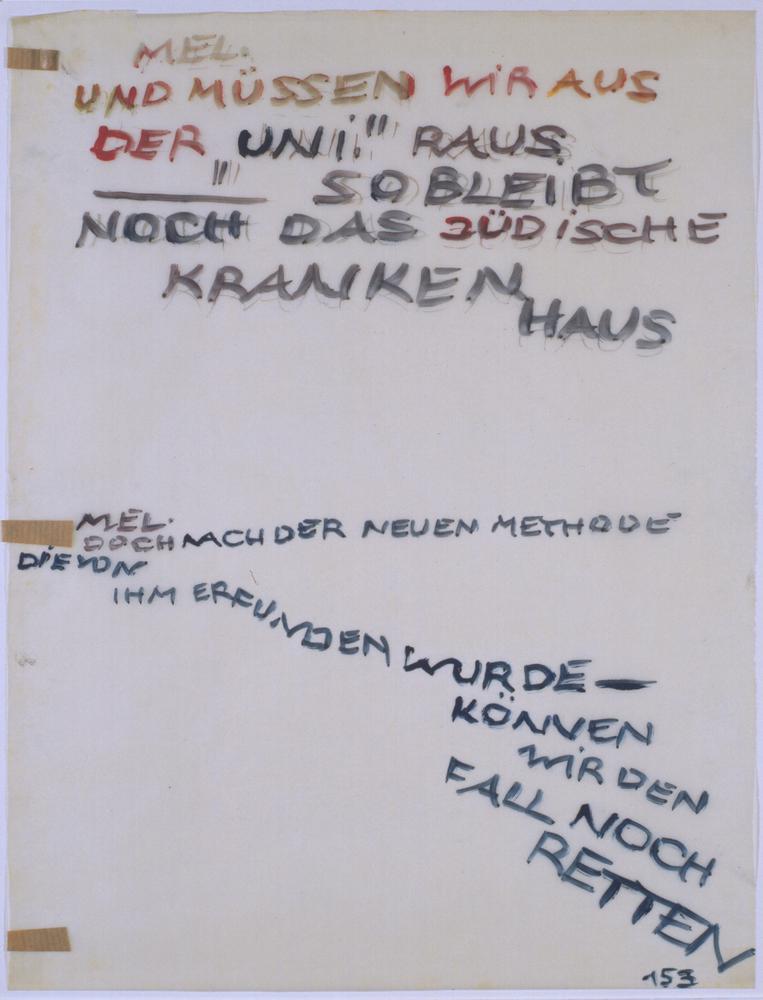 MEL.
UND MÜSSEN WIR AUS
DER UNI" RAUS
" SO BLEIBT
NOCH DAS JÜDISCHE
KRANKEN
HAUS
MEL.
DOCH NACH DER NEUEN METHODE
DIE VON
IHM ERFUNDEN WURDE —
KÖNNEN
WIR DEN
FALL NOCH
RETTEN
153